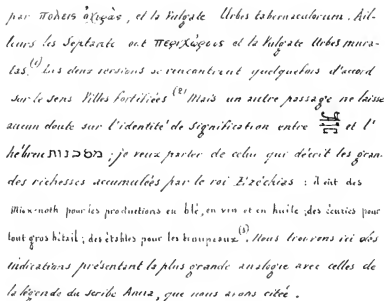 par πόλεις ὀχυράς, et la Vulgate Urbes tabernaculorum. Ail-
leurs les Septante ont περιχώρους et la Vulgate Urbes mura-
tas.(1) Les deux versions se rencontrent quelquefois d'accord
sur le sens Villes fortifiées (2) Mais un autre passage ne laisse
aucun doute sur l'identité de signification entre et l'
hébreu מסכנות ; je veux parler de celui qui décrit les gran-
des richesses accumulées par le roi Ézéchias : il fit des
Misk-noth pour les productions en blé, en vin et en huile ; des écuries pour
tout gros bétail ; des étables pour les troupeaux (3). Nous trouvons ici des
indications présentant la plus grande analogie avec celles de
la légende du scribe Anna, que nous avons cité.